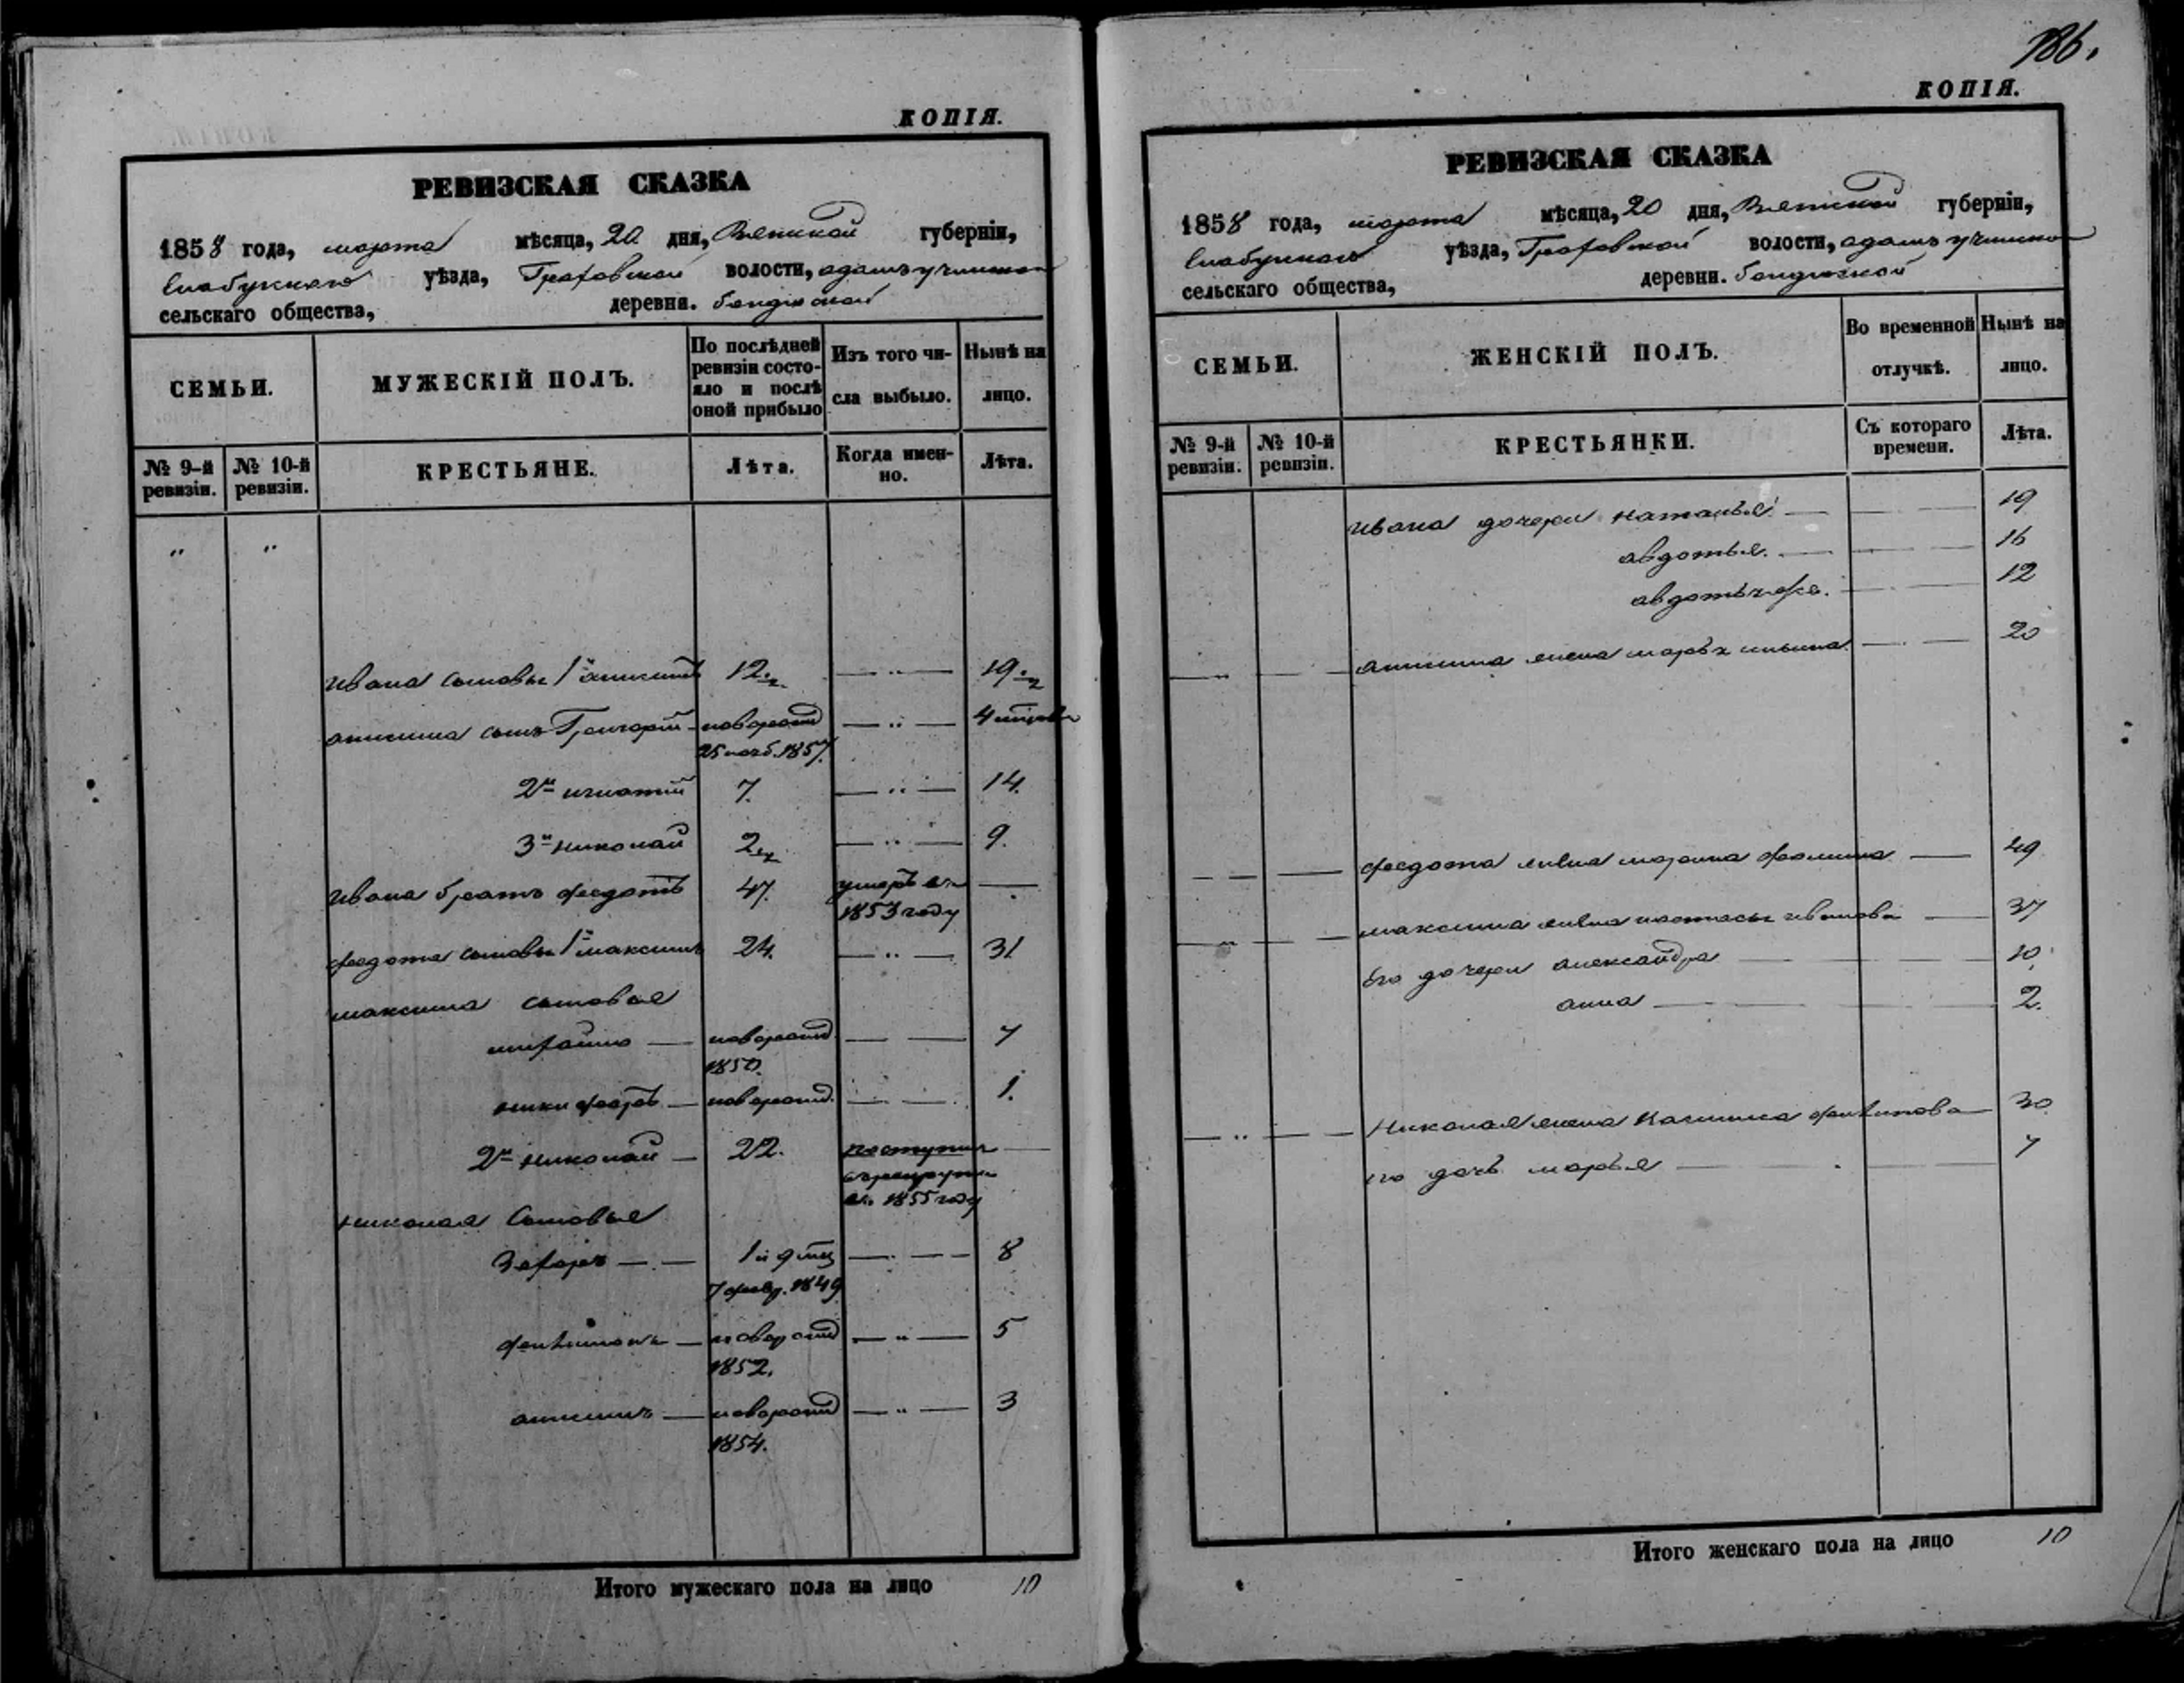 КОПІЯ.
РЕВИЗСКАЯ СКАЗКА
1858 года, марта мѣсяца, 20 дня, Вятской губерніи,
Елабужскаго уѣзда, Граховской волости,
сельскаго общества, деревни.
СЕМЬИ.
МУЖЕСКІЙ ПОЛЪ.
По послѣдней ревизіи состо-
яло и послѣ оной прибыло
Изъ того чи-
сла выбыло.
Нынѣ на лицо.
№ 9-й ревизіи.
№ 10-й ревизіи.
КРЕСТЬЯНЕ.
Лѣта.
Когда имен-
но.
Лѣта.
" "
Ивана сыновья 1й 12 — " — 19
анисима сынъ Григорій новорожд — " —
25 1857.
2й игнатій 7. — " — 14.
3й николай 2 — " — 9.
Ивана братъ федотъ 47. умеръ въ —
1853 году
федота сыновья 1й максимъ 24. — " — 31
максима сыновья
новорожд — — 7
1850.
никифоръ — новорожд. — — 1.
2й николай — 22. поступилъ —
въ рекруты
въ 1855 году
николая сыновья
Захаръ — — 1 и 9 мѣс — — 8
7 февр. 1849
филимонъ — новорожд — " — 5
1852.
анисимъ — новорожд — " — 3
1854.
Итого мужескаго пола на лицо 10
186.
КОПІЯ.
РЕВИЗСКАЯ СКАЗКА
1858 года, марта мѣсяца, 20 дня, Вятской губерніи,
Елабужскаго уѣзда, Граховской волости,
сельскаго общества, деревни.
СЕМЬИ.
ЖЕНСКІЙ ПОЛЪ.
Во временной
отлучкѣ.
Нынѣ на
лицо.
№ 9-й ревизіи.
№ 10-й ревизіи.
КРЕСТЬЯНКИ.
Съ котораго
времени.
Лѣта.
Ивана дочери наталья — — 19
авдотья. — — 16
— 12
анисима жена марья ильина — — 20
федота жена марина фомина — 49
максима жена настасья иванова — 37
его дочери александра — — 10.
анна — — 2.
Николая жена филипова — 30
его дочь марья — — 7
Итого женскаго пола на лицо 10